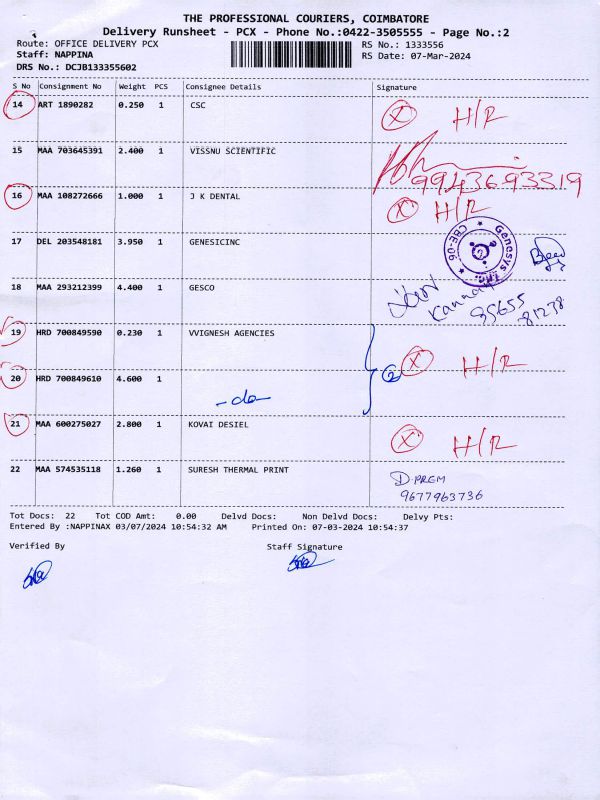 THE PROFESSIONAL COURIERS, COIMBATORE
Delivery Runsheet - PCX - Phone No.:0422-3505555 - Page No.:2
Route: OFFICE DELIVERY PCX RS No.: 1333556
Staff: NAPPINA RS Date: 07-Mar-2024
DRS No.: DCJB133355602
S No Consignment No Weight PCS Consignee Details Signature
14 ART 1890282 0.250 1 CSC X H/R
15 MAA 703645391 2.400 1 VISSNU SCIENTIFIC
9943693319
16 MAA 108272666 1.000 1 J K DENTAL X H/R
17 DEL 203548181 3.950 1 GENESICINC
Genesys INC. CBE-06
18 MAA 293212399 4.400 1 GESCO
Kannan
95655
81238
19 HRD 700849590 0.230 1 VVIGNESH AGENCIES
2 X H/R
20 HRD 700849610 4.600 1
-do-
21 MAA 600275027 2.800 1 KOVAI DESIEL X H/R
22 MAA 574535118 1.260 1 SURESH THERMAL PRINT D.PREM
9677963736
Tot Docs: 22 Tot COD Amt: 0.00 Delvd Docs: Non Delvd Docs: Delvy Pts:
Entered By :NAPPINAX 03/07/2024 10:54:32 AM Printed On: 07-03-2024 10:54:37
Verified By Staff Signature